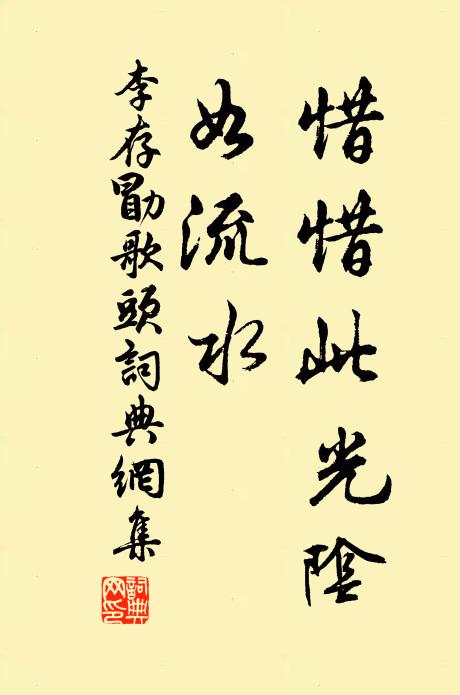 惜惜此光陰
如流水
李存勗歌頭詞典網集
詞典网印